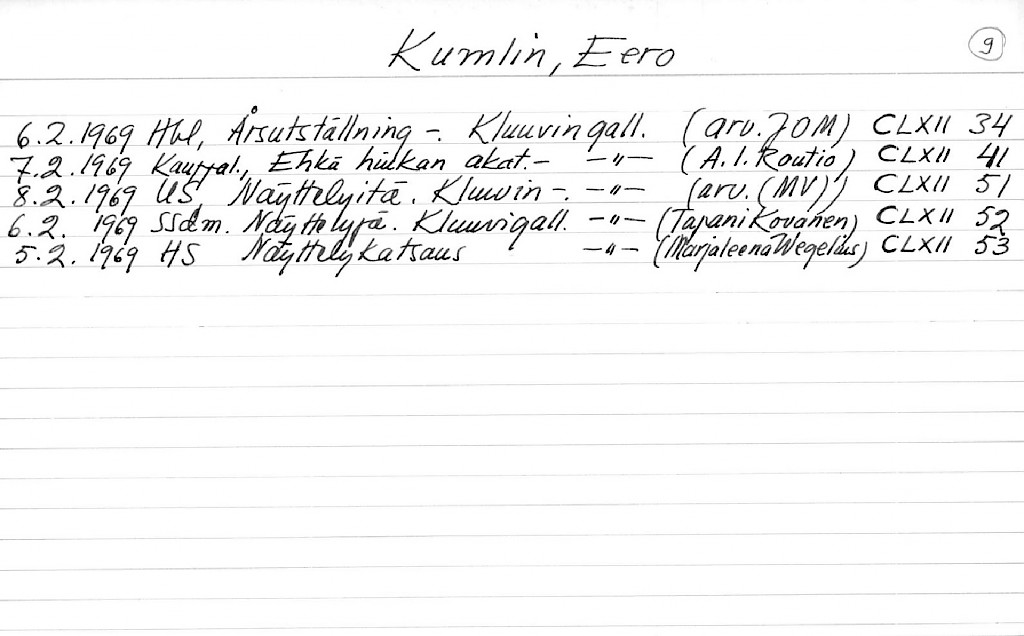 Kumlin, Eero 9
6.2.1969 Hbl, Årsutställning -. Kluuvin gall. (arv. JOM) CLXII 34
7.2.1969 Kauppal., Ehkä hiukan akat. - -"- (A.I. Routio) CLXII 41
8.2.1969 US, Näyttelyitä. Kluuvin -. -"- (arv. (MV)) CLXII 51
6.2. 1969 SSdm. Kluuvigall. -"- (Tapani Kovanen) CLXII 52
5.2. 1969 HS Näyttelykatsaus -"- (Marjaleena Wegelius) CLXII 53